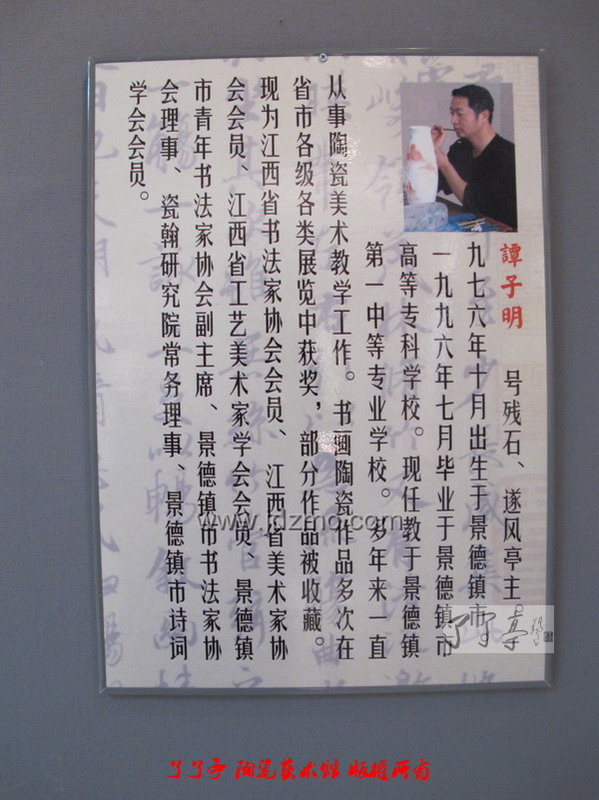 譚子明 号残石、遂风亭主。
九七六年十月出生于景德镇市。
一九九六年七月毕业于景德镇市
高等专科学校。现任教于景德镇
第一中等专业学校。多年来一直
从事陶瓷美术教学工作。书画陶瓷作品多次在
省市各级各类展览中获奖，部分作品被收藏。
现为江西省书法家协会会员、江西省美术家协
会会员、江西省工艺美术家学会会员、景德镇
市青年书法家协会副主席、景德镇市书法家协
会理事、瓷翰研究院常务理事、景德镇市诗词
学会会员。
www.jdzmc.com
了了亭
了了亭 陶瓷美术馆 版权所有